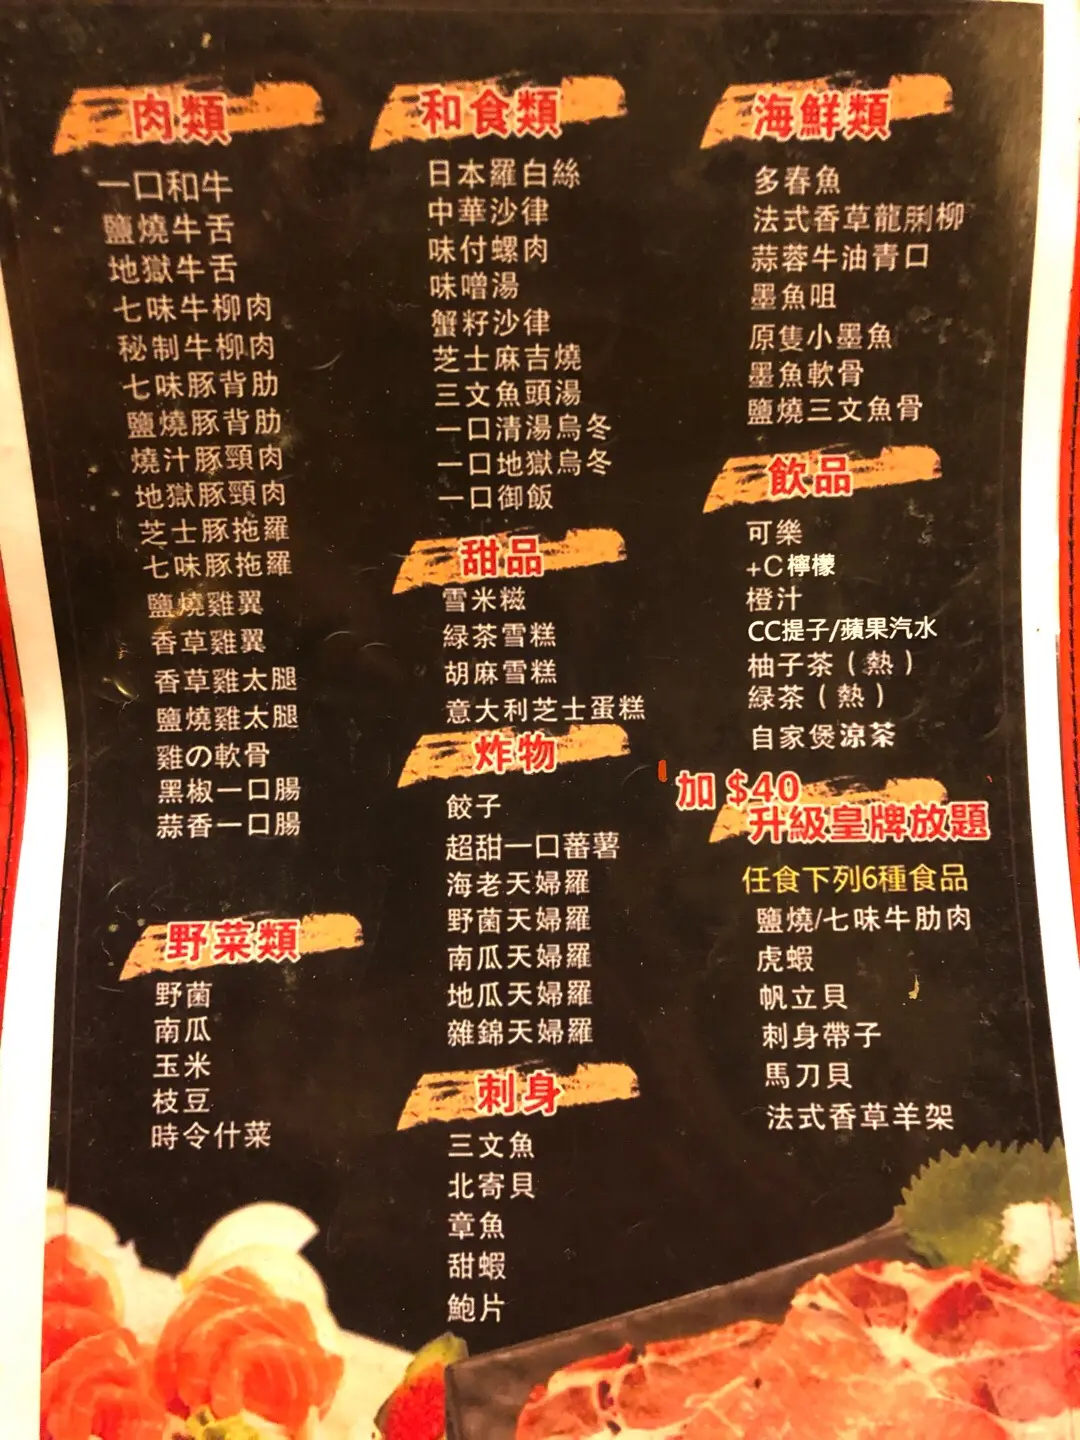 肉類
一口和牛
鹽燒牛舌
地獄牛舌
七味牛柳肉
秘制牛柳肉
七味豚背肋
鹽燒豚背肋
燒汁豚頸肉
地獄豚頸肉
芝士豚拖羅
七味豚拖羅
鹽燒雞翼
香草雞翼
香草雞太腿
鹽燒雞太腿
雞の軟骨
黑椒一口腸
蒜香一口腸
野菜類
野菌
南瓜
玉米
枝豆
時令什菜
和食類
日本羅白絲
中華沙律
味付螺肉
味噌湯
蟹籽沙律
芝士麻吉燒
三文魚頭湯
一口清湯烏冬
一口地獄烏冬
一口御飯
甜品
雪米糍
緑茶雪糕
胡麻雪糕
意大利芝士蛋糕
炸物
餃子
超甜一口蕃薯
海老天婦羅
野菌天婦羅
南瓜天婦羅
地瓜天婦羅
雜錦天婦羅
刺身
三文魚
北寄貝
章魚
甜蝦
鮑片
海鮮類
多春魚
法式香草龍脷柳
蒜蓉牛油青口
墨魚咀
原隻小墨魚
墨魚軟骨
鹽燒三文魚骨
飲品
可樂
+C檸檬
橙汁
CC提子/蘋果汽水
柚子茶（熱）
緑茶（熱）
自家煲涼茶
加 $40
升級皇牌放題
任食下列6種食品
鹽燒/七味牛肋肉
虎蝦
帆立貝
刺身帶子
馬刀貝
法式香草羊架